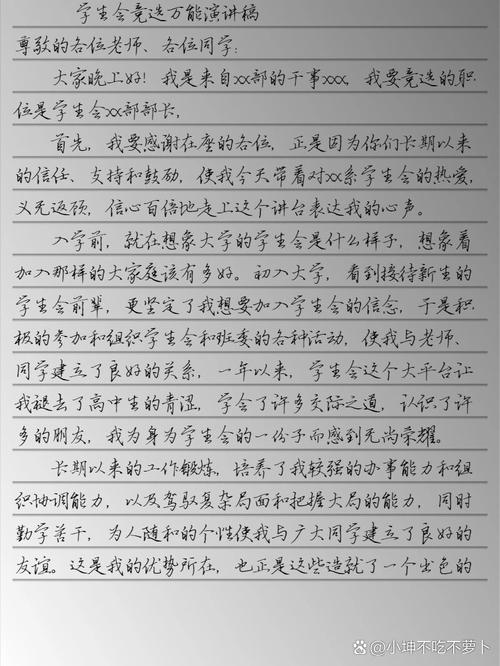 学生会竞选万能演讲稿
尊敬的各位老师、各位同学:
大家晚上好!我是来自xx部的干事xxx,我要竞选的职
位是学生会xx部部长,
首先,我要感谢在座的各位,正是因为你们长期以来
的信任、支持和鼓励,使我今天带着对xx系学生会的热爱,
义无返顾,信心百倍地走上这个讲台表达我的心声。
入学前,就在想象大学的学生会是什么样子,想象着
加入那样的大家庭该有多好。初入大学,看到接待新生的
学生会前辈,更坚定了我想要加入学生会的信念,于是积
极的参加和组织学生会和班委的各种活动,使我与老师、
同学建立了良好的关系,一年以来,学生会这个大平台让
我褪去了高中生的青涩,学会了许多交际之道,认识了许
多的朋友,我为身为学生会的一份子而感到无尚荣耀。
长期以来的工作锻炼,培养了我较强的办事能力和组
织协调能力,以及驾驭复杂局面和把握大局的能力,同时
勤学善干,为人随和的个性使我与广大同学建立了良好的
友谊。这是我的优势所在,也正是这些造就了一个出色的
@小坤不吃不萝卜